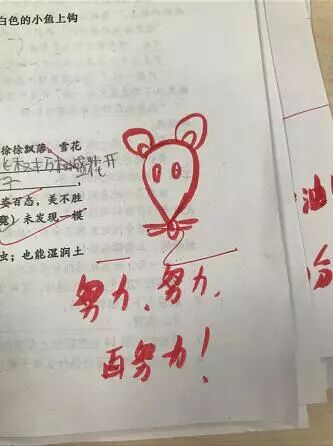 白色的小鱼上钩
徐徐飘落。雪花
姿百态，美不胜
未发现一模
虫；也能湿润土
努力、努力、
再努力！
油
分